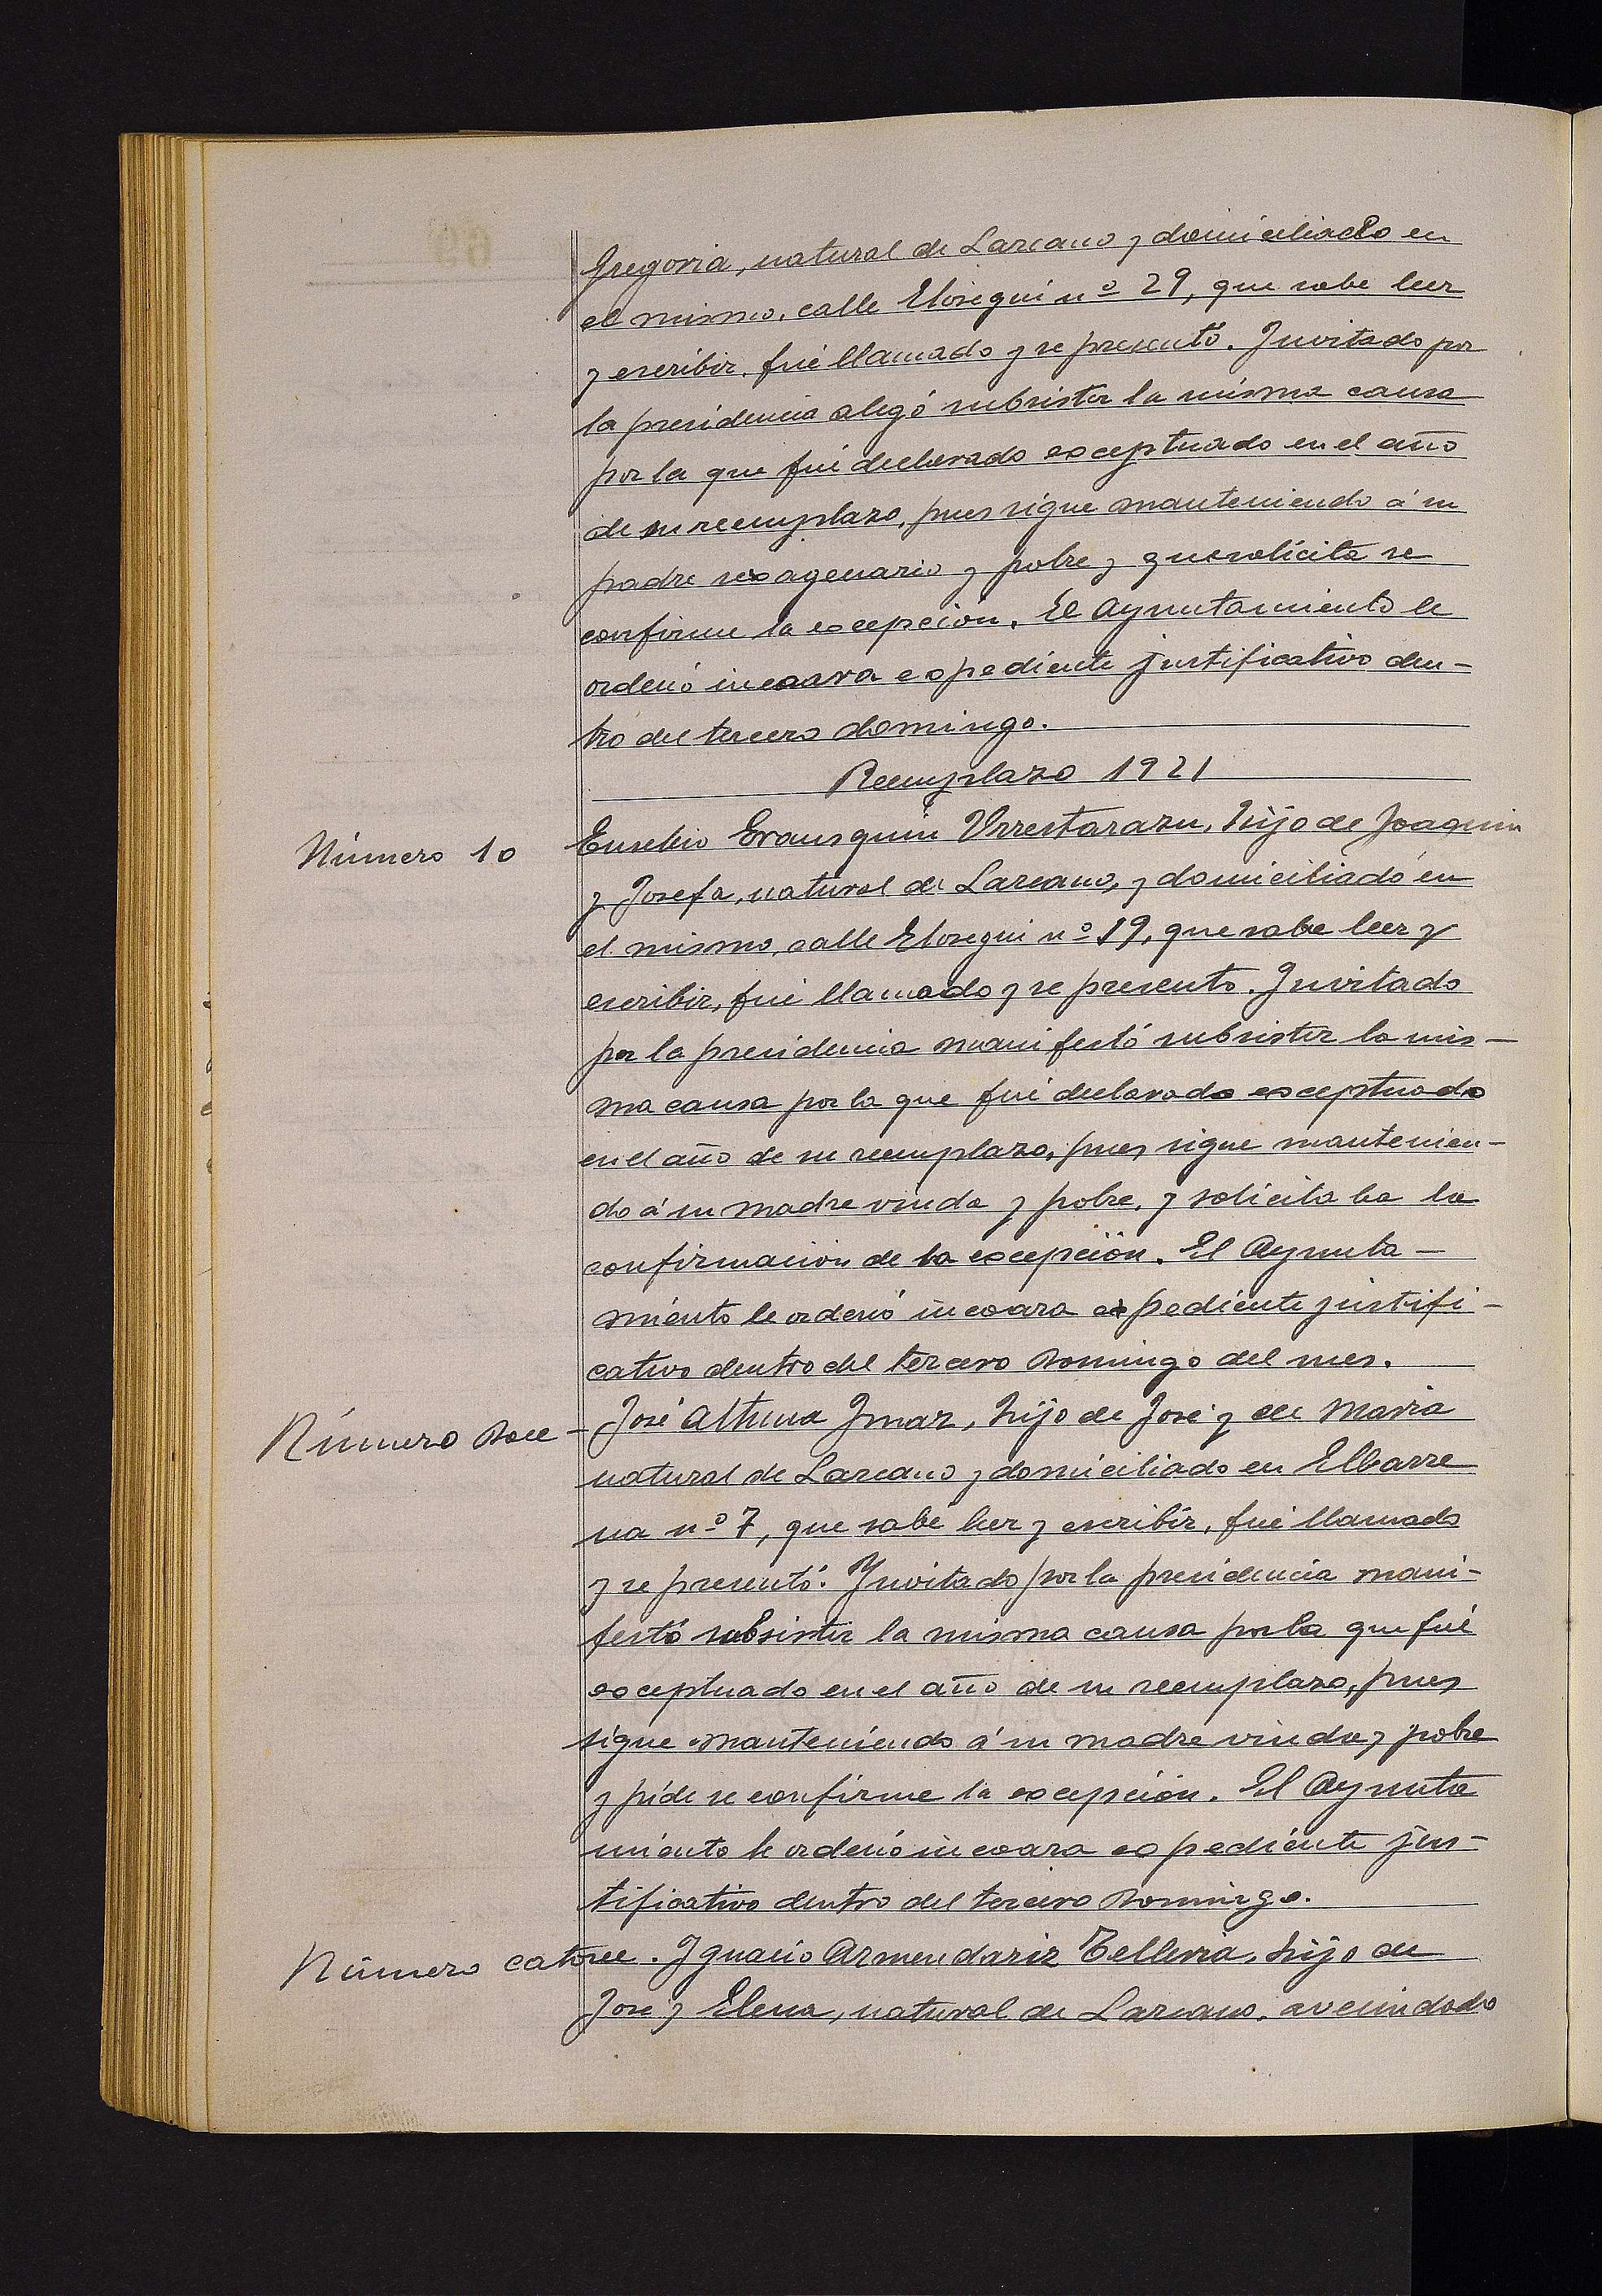 Gregoria, natural de Lazcano y domiciliado en
el mismo, calle Elosegui nº 29, que sabe leer
y escribir, fué llamado y se presentó. Invitado por
la presidencia alegó subsistir la misma causa
por la que fué declarado exceptuado en el año
de su reemplazo, pues sigue manteniendo á su
padre sexagenario y pobre y que solicita se
confirme la excepción. El Ayuntamiento le
ordenó incoara expediente justificativo den-
tro del tercero domingo.
Reemplazo 1921
Número 10
Eusebio Erausquin Urrestarazu, hijo de Joaquin
y Josefa, natural de Lazcano, y domiciliado en
el mismo, calle Elosegui nº 19, que sabe leer y
escribir, fué llamado y se presentó. Invitado
por la presidencia manifestó subsistir la mis-
ma causa por la que fué declarado exceptuado
en el año de su reemplazo, pues sigue mantenien-
do á su madre viuda y pobre, y solicitaba la
confirmación de la excepción. El Ayunta-
miento le ordenó incoara expediente justifi-
cativo dentro del tercero Domingo del mes.
Número Doce - José Altuna Imaz, hijo de José y de Maria
natural de Lazcano y domiciliado en Elbarre
na nº 7, que sabe leer y escribir, fué llamado
y se presentó. Invitado por la presidencia mani-
festó subsistir la misma causa por la que fué
exceptuado en el año de su reemplazo, pues
sigue manteniendo á su madre viuda y pobre
y pide se confirme la excepción. El Ayunta
miento le ordenó incoara expediente jus-
tificativo dentro del tercero Domingo.
Número catorce. Ignacio Armendariz Telleria, hijo de
José y Elena, natural de Lazcano, avecindado